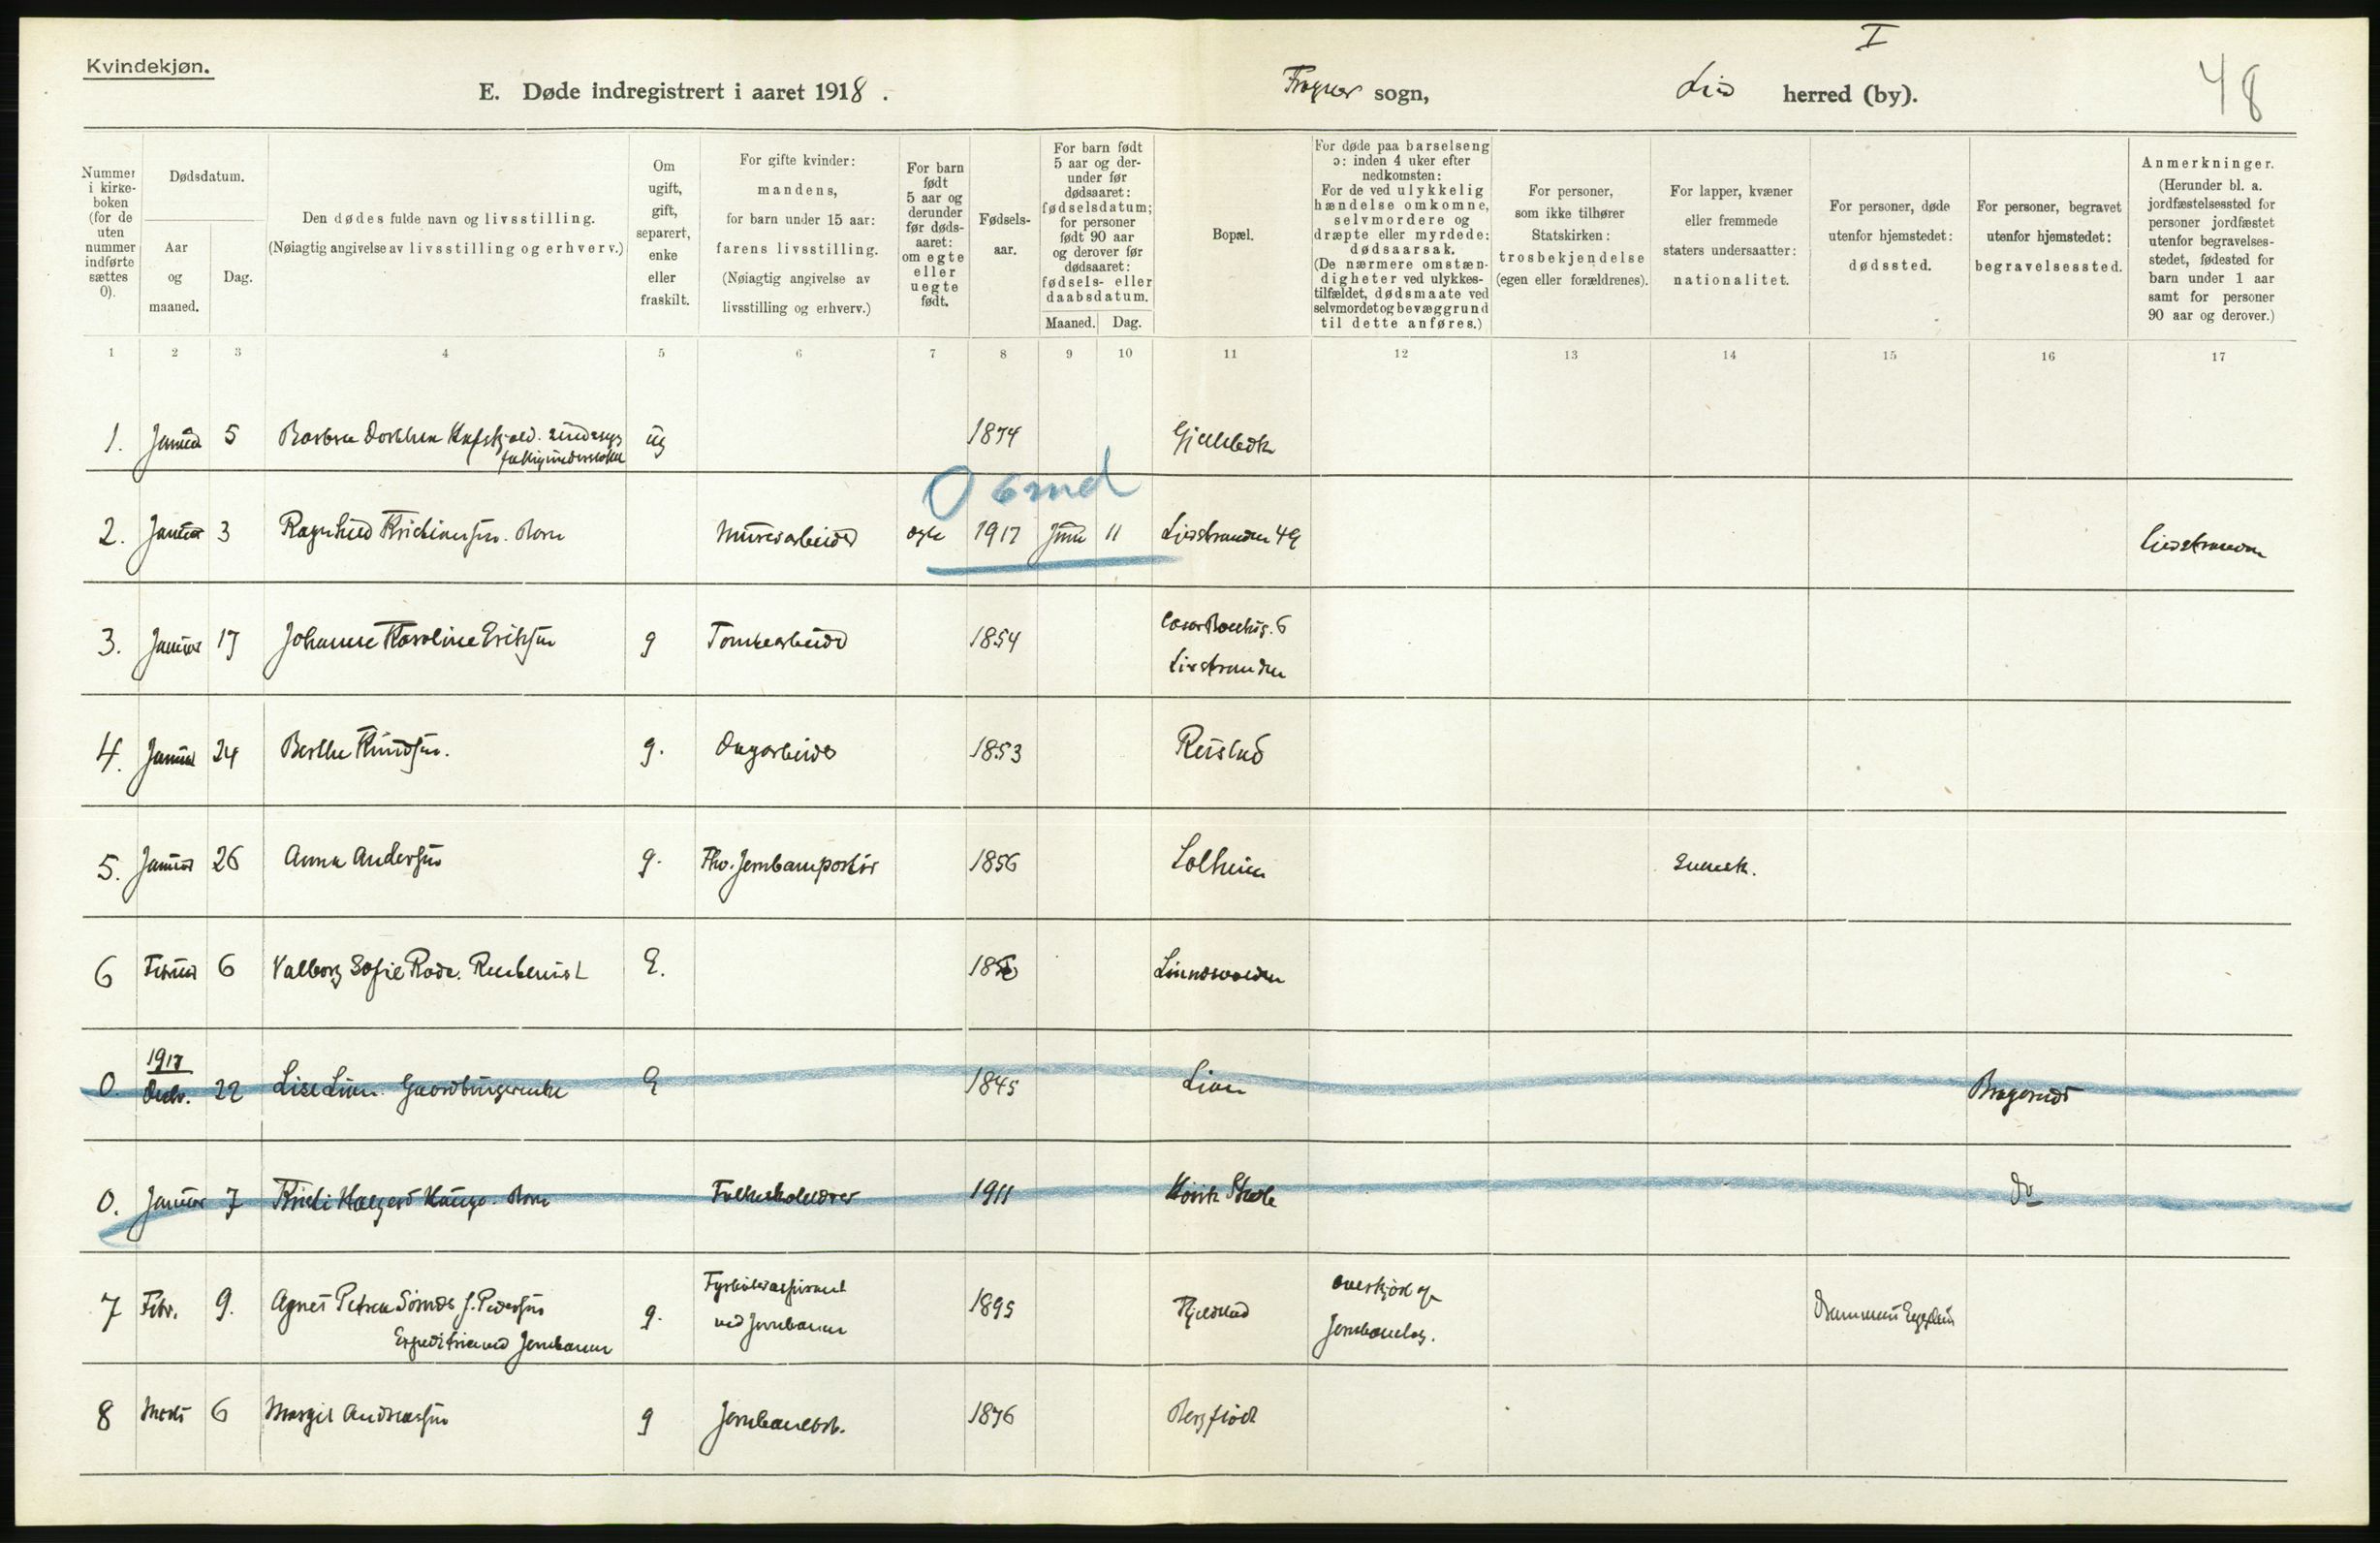 I
Kvindekjøn.
E. Døde indregistrert i aaret 1918.
Frogner sogn,
Lier herred (by).
48
Nummer i kirkeboken (for de uten nummer indførte sættes 0).
Dødsdatum.
Aar og maaned.
Dag.
Den dødes fulde navn og livsstilling.
(Nøiagtig angivelse av livsstilling og erhverv.)
Om ugift, gift, separert, enke eller fraskilt.
For gifte kvinder: mandens, for barn under 15 aar: farens livsstilling.
(Nøiagtig angivelse av livsstilling og erhverv.)
For barn født 5 aar og derunder før dødsaaret: om egte eller uegte født.
Fødselsaar.
For barn født 5 aar og derunder før dødsaaret: fødselsdatum; for personer født 90 aar og derover før dødsaaret: fødsels- eller daabsdatum.
Maaned. Dag.
Bopæl.
For døde paa barselseng ɔ: inden 4 uker efter nedkomsten:
For de ved ulykkelig hændelse omkomne, selvmordere og dræpte eller myrdede: dødsaarsak.
(De nærmere omstændigheter ved ulykkestilfældet, dødsmaate ved selvmordet og bevæggrund til dette anføres.)
For personer, som ikke tilhører Statskirken: trosbekjendelse (egen eller forældrenes).
For lapper, kvæner eller fremmede staters undersaatter: nationalitet.
For personer, døde utenfor hjemstedet: dødssted.
For personer, begravet utenfor hjemstedet: begravelsessted.
Anmerkninger.
(Herunder bl. a. jordfæstelsessted for personer jordfæstet utenfor begravelsesstedet, fødested for barn under 1 aar samt for personer 90 aar og derover.)
1 2 3 4 5 6 7 8 9 10 11 12 13 14 15 16 17
1. Januar 5 ug 1874 Gjellebæk
0 6 md
2. Januar 3 Ragnhild Kristiansen. Barn Murerarbeider egte 1917 Juni 11 Lierstranden 49 Lierstranden
3. Januar 17 Johanne Karoline Eriksen g Tomtearbeider 1854 6
Lierstranden
4. Januar 24 Berthe Knudsen. g. Dagarbeider 1853 Reistad
5. Januar 26 Anna Andersen g. Fhv. Jernbaneportør 1856 Solheim Svensk.
6 Februar 6 Valborg Sofie Rode. E. Linnesvollen
1917
0. Decbr. 22 Lise Lian. Gaardbrugerenke E 1845 Lian Bragernes
0. Januar 7 Hauge. Barn Folkeskolelærer 1911 Skole do
7 Febr. 9. Agnes Petrea f. Pedersen g. ved Jernbanen 1895 Kjeldstad Overkjørt af Drammen
ved Jernbanen Jernbanetog.
8 Marts 6 Margit Andreassen g 1876 Bergfløt